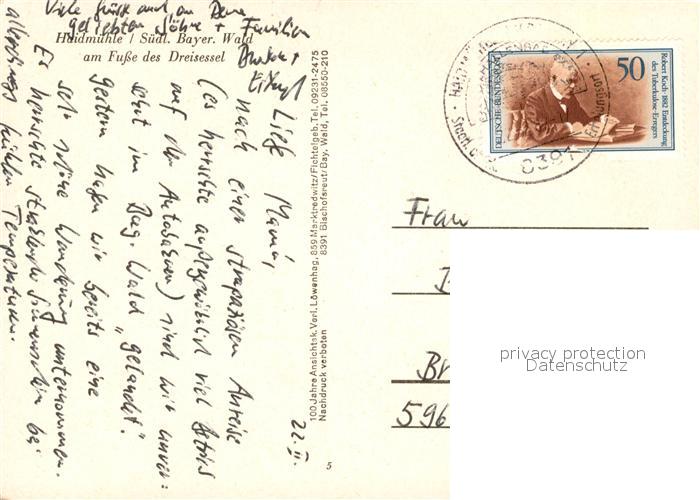 Viele Grüße auch an Deine
geliebten Söhne + Familien
Haidmühle / Südl. Bayer. Wald
am Fuße des Dreisessel
22.II.
Liebe Mama,
nach einer strapaziösen Anreise
(es herrschte außergewöhnlich viel Betrieb
auf der Autobahnen) sind wir unver-
sehrt im Bay. Wald "gelandet".
Gestern haben wir bereits eine
sehr schöne Wanderung unternommen.
Es herrschte strahlender Sonnenschein bei
allerdings kühlen Temperaturen.
100 Jahre Ansichtsk. Verl. Löwenhag, 859 Marktredwitz/Fichtelgeb. Tel. 09231-2475
8391 Bischofsreut/Bay. Wald, Tel. 08550-210
Nachdruck verboten
5
50
Robert Koch · 1882 Entdeckung
des Tuberkulose-Erregers
DEUTSCHE BUNDESPOST
8391
Frau
Br
596
privacy protection
Datenschutz